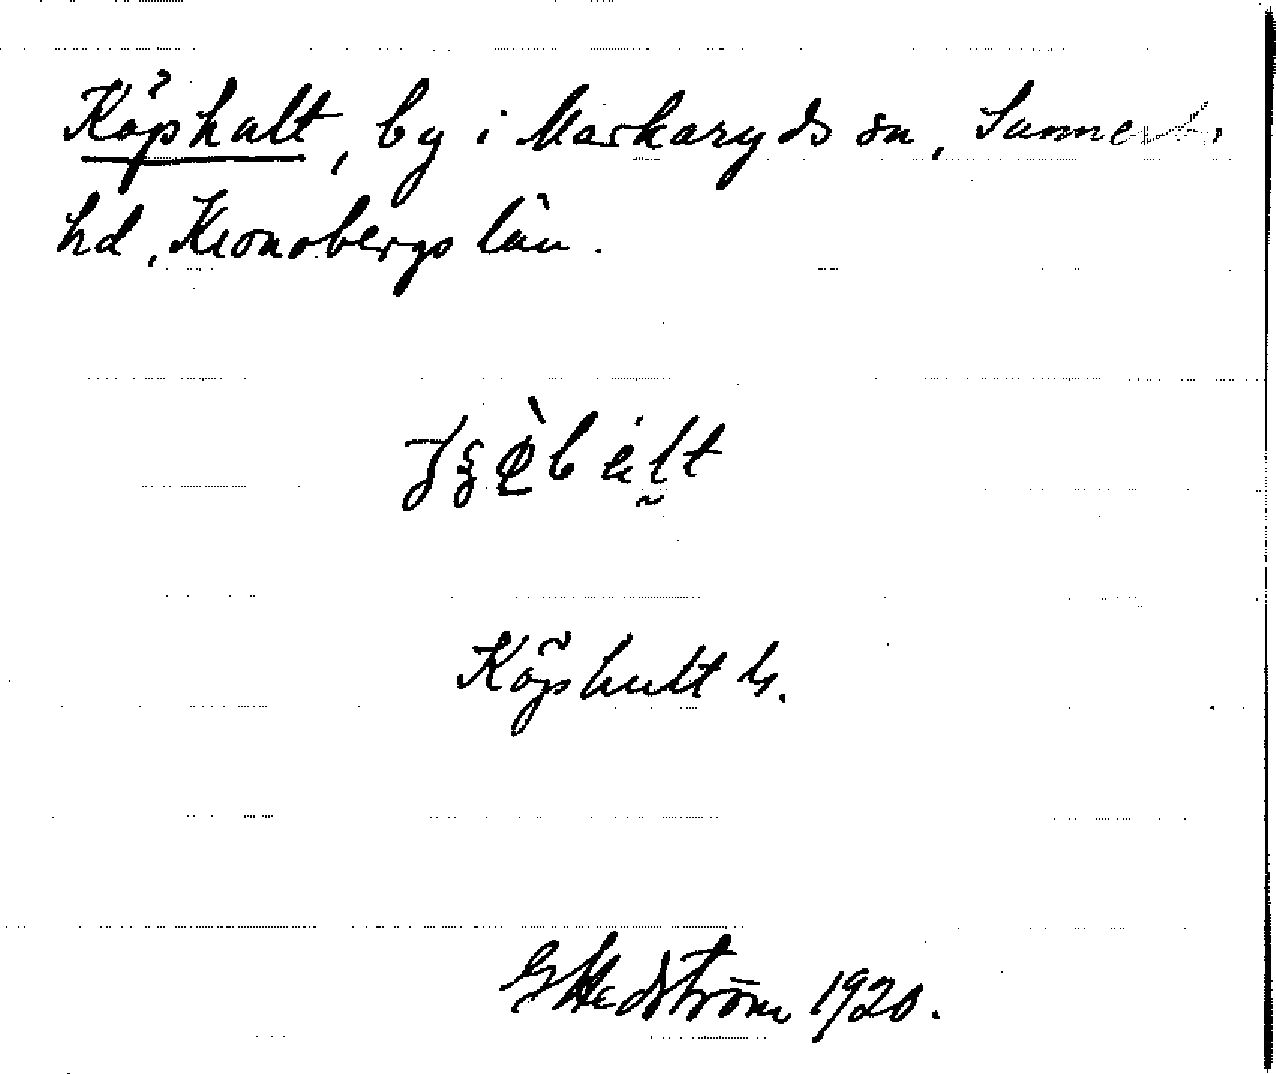 Köphult, by i Markaryds sn, Sunnerbo
hd, Kronobergs län.
Köphult
G Hedström 1920.